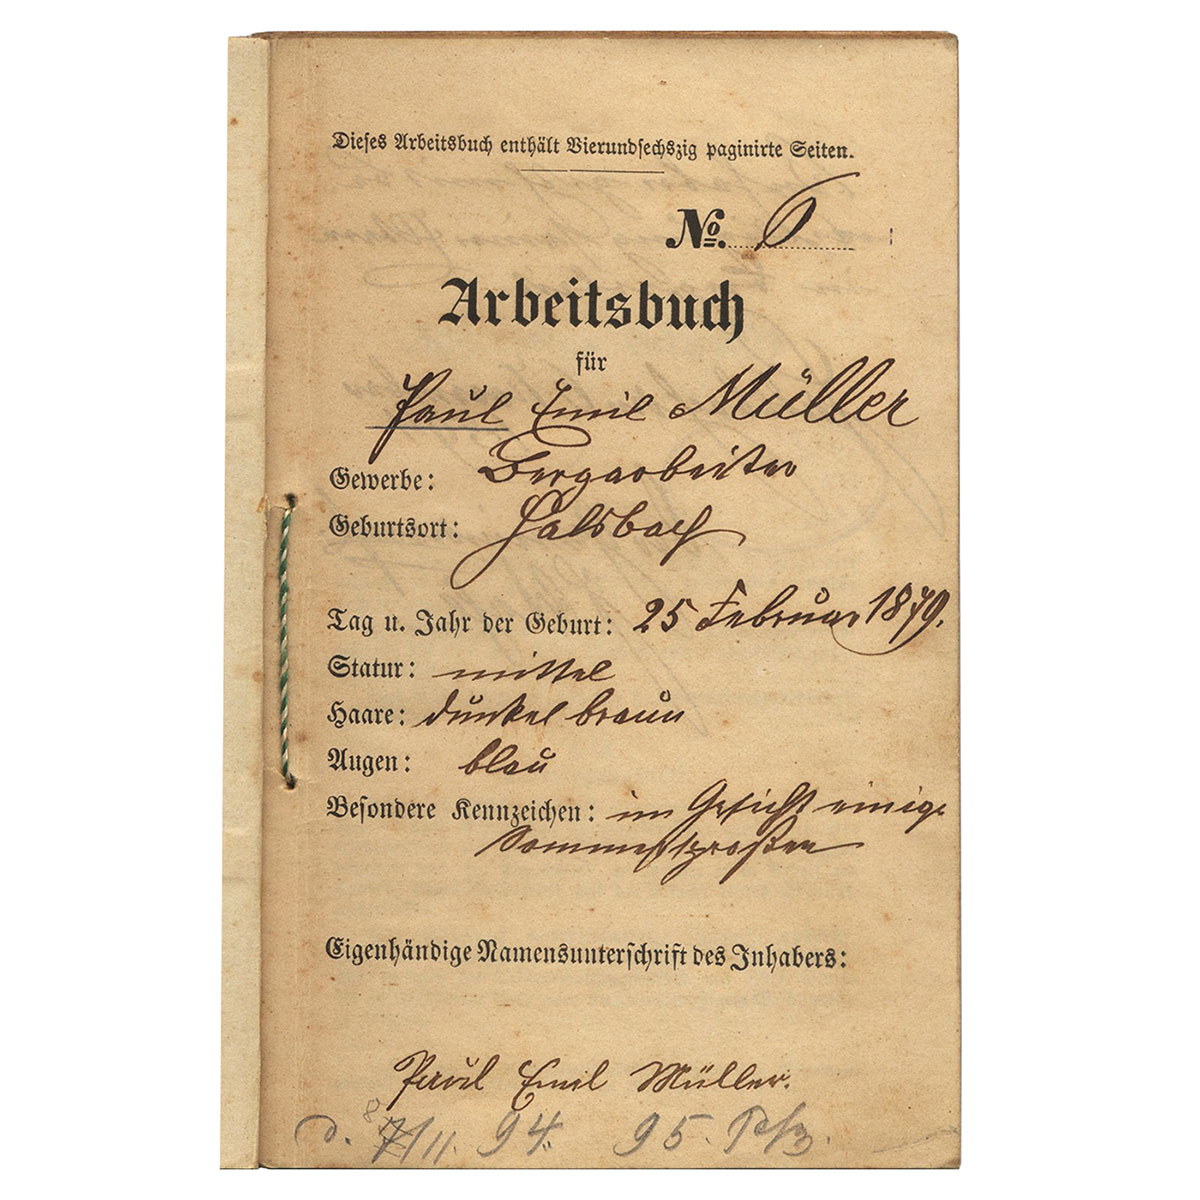 Dieses Arbeitsbuch enthält Vierundsechszig paginirte Seiten.
No. 6
Arbeitsbuch
für
Paul Emil Müller
Gewerbe: Bergarbeiter
Geburtsort: Halsbach
Tag u. Jahr der Geburt: 25 Februar 1879.
Statur: mittel
Haare: dunkel braun
Augen: blau
Besondere Kennzeichen: im Gesicht einige
Sommersproßen
Eigenhändige Namensunterschrift des Inhabers:
Paul Emil Müller.
d. 8/11. 94. 95.